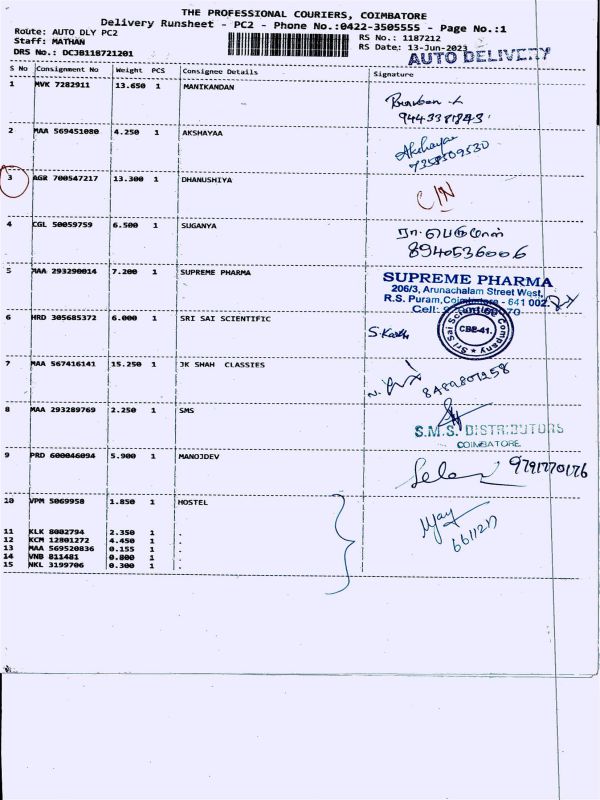 THE PROFESSIONAL COURIERS, COIMBATORE
Delivery Runsheet - PC2 - Phone No.:0422-3505555 - Page No.:1
Route: AUTO DLY PC2
Staff: MATHAN
RS No.: 1187212
DRS No.: DCJB118721201
RS Date: 13-Jun-2023
AUTO DELIVERY
S No Consignment No Weight PCS Consignee Details Signature
1 MVK 7282911 13.650 1 MANIKANDAN
9443381843
2 MAA 569451080 4.250 1 AKSHAYAA
Akshayaa
7358509530
3 AGR 700547217 13.300 1 DHANUSHIYA
C/N
4 CGL 50059759 6.500 1 SUGANYA
8940536006
5 MAA 293290014 7.200 1 SUPREME PHARMA
SUPREME PHARMA
206/3, Arunachalam Street West,
R.S. Puram, Coimbatore - 641 002.
Cell:
6 HRD 305685372 6.000 1 SRI SAI SCIENTIFIC
Sri Sai Scientific Company
CBE-41.
7 MAA 567416141 15.250 1 JK SHAH CLASSIES
8 MAA 293289769 2.250 1 SMS
S.M.S. DISTRIBUTORS
COIMBATORE
9 PRD 600046094 5.900 1 MANOJDEV
9791770176
10 VPM 5069958 1.850 1 HOSTEL
11 KLK 8002794 2.350 1 .
12 KCM 12801272 4.450 1 .
13 MAA 569520836 0.155 1 .
14 VNB 811481 0.800 1 .
15 NKL 3199706 0.300 1 .